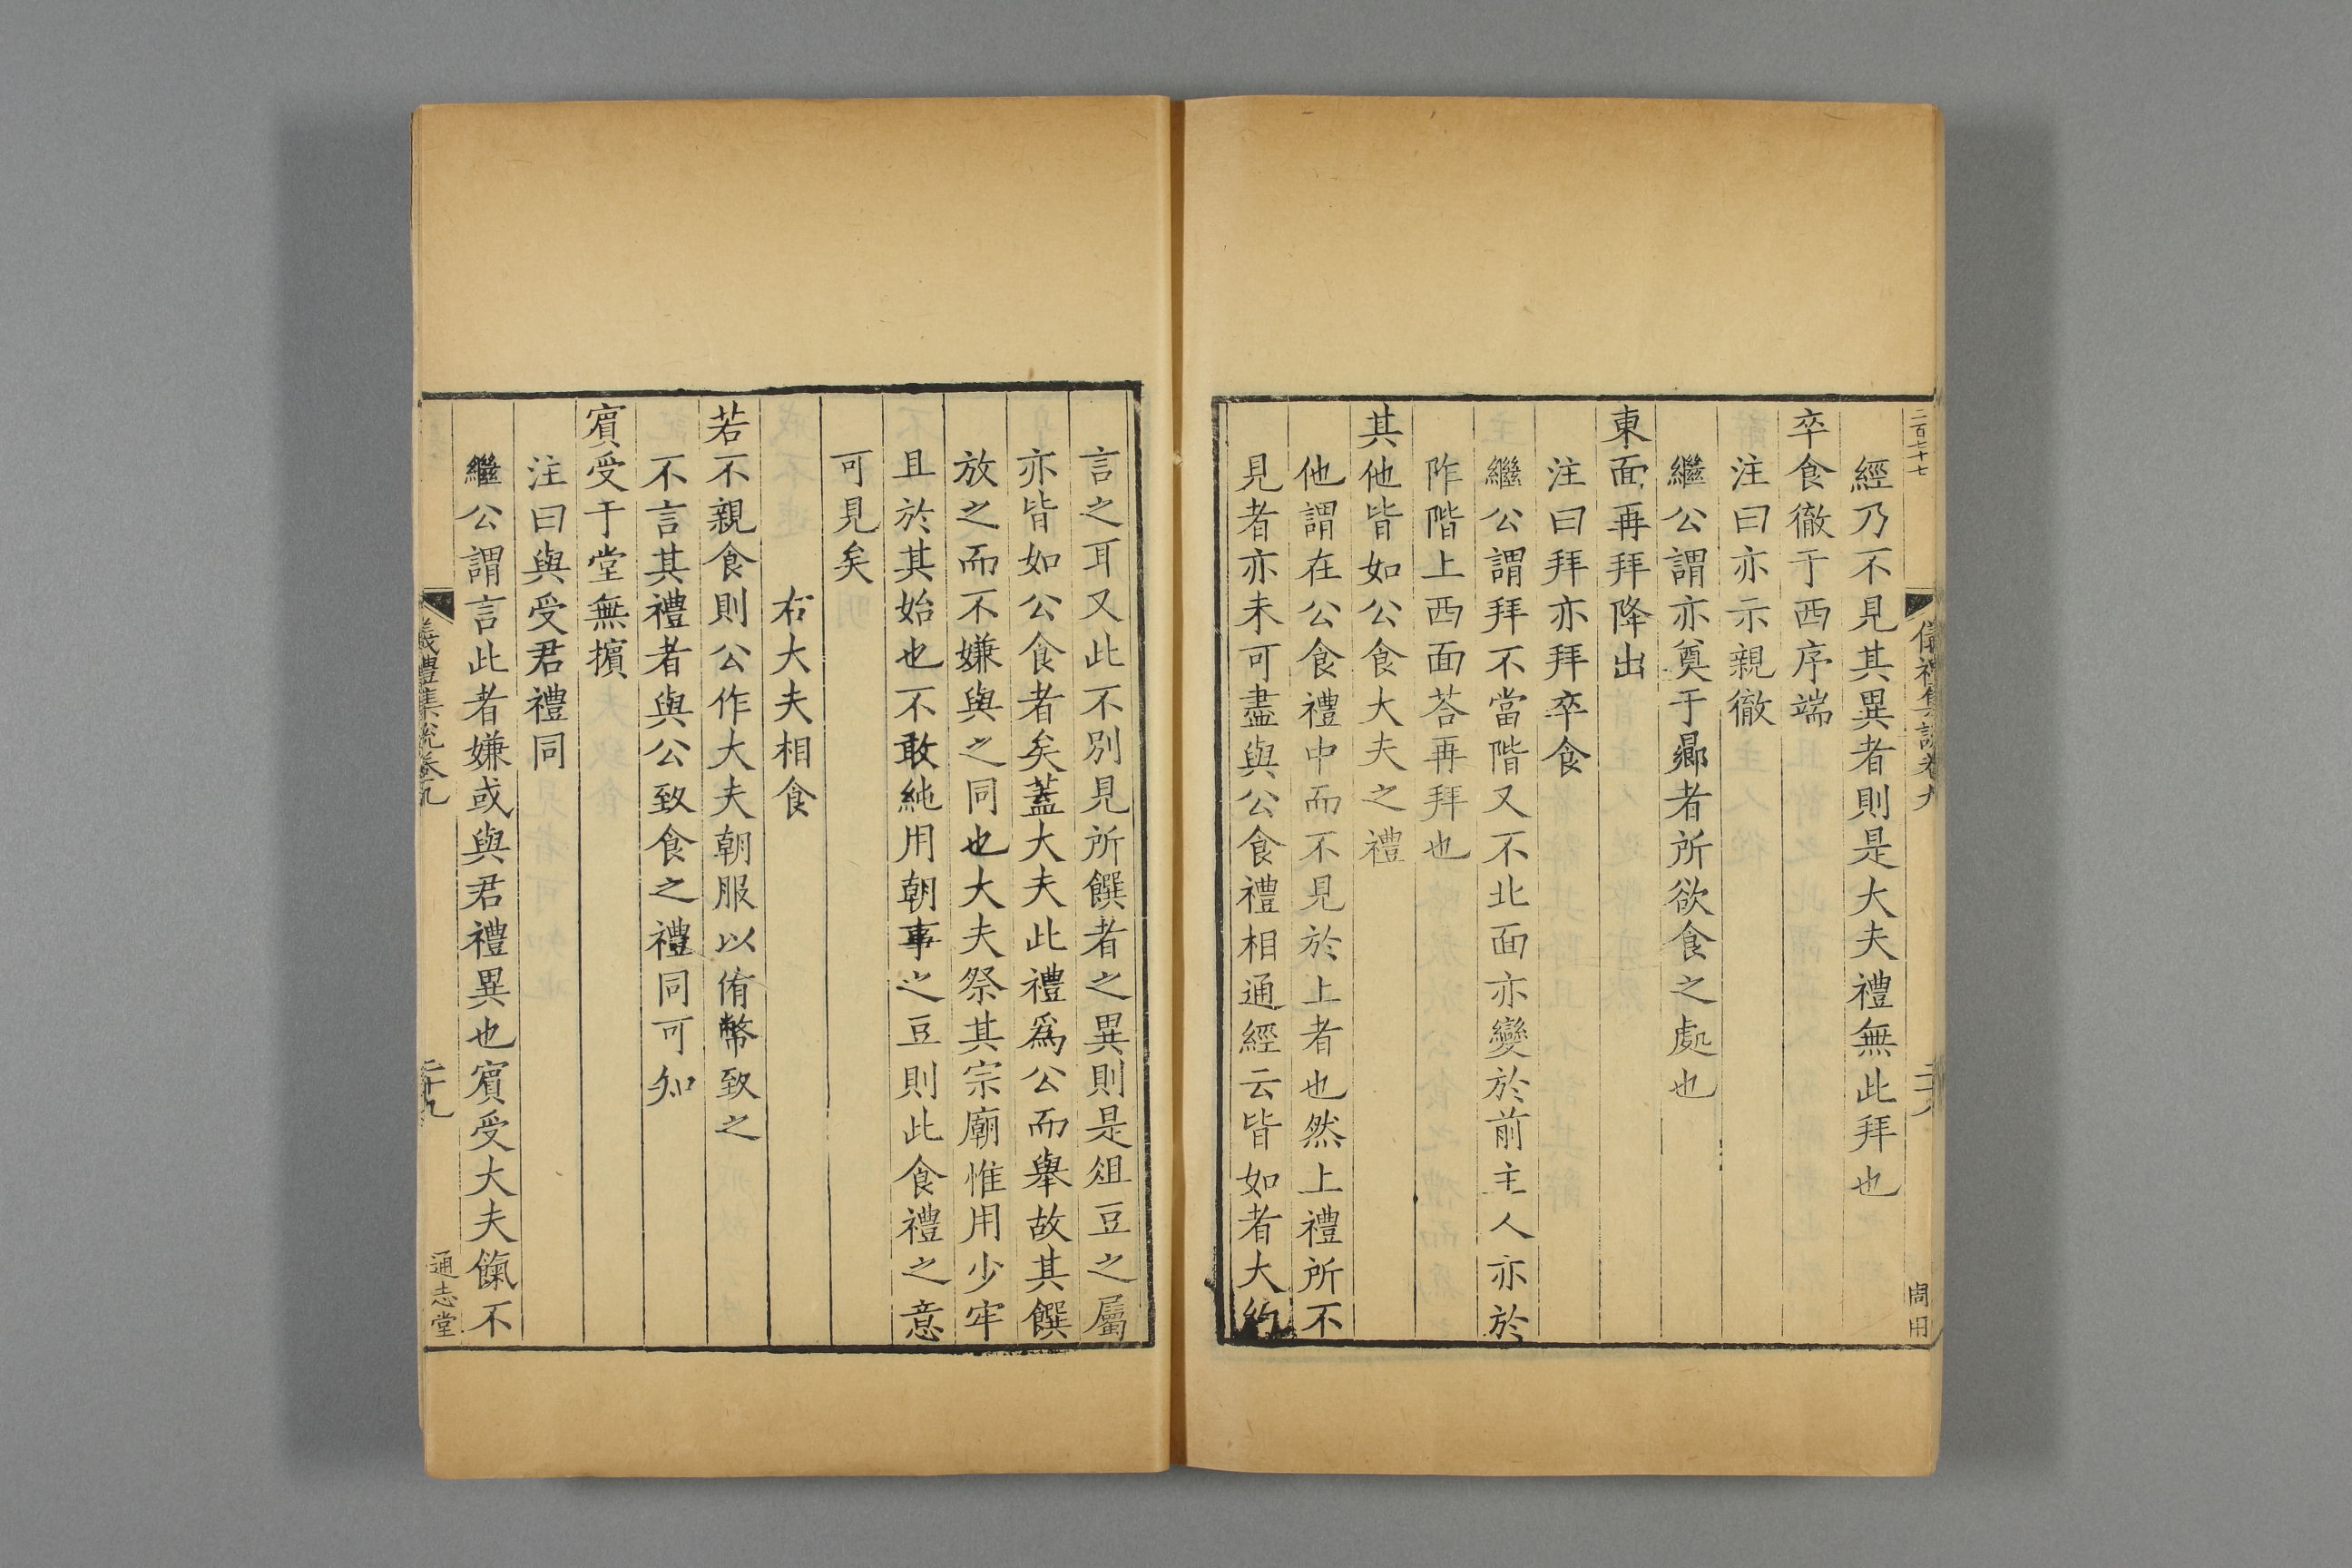 二百七十七
儀禮集說卷九
二十八
經乃不見其異者則是大夫禮無此拜也
卒食徹于西序端
注曰亦示親徹
繼公謂亦奠于曏者所欲食之處也
東面再拜降出
注曰拜亦拜卒食
繼公謂拜不當階又不北面亦變於前主人亦於
阼階上西面荅再拜也
其他皆如公食大夫之禮
他謂在公食禮中而不見於上者也然上禮所不
見者亦未可盡與公食禮相通經云皆如者大約
言之耳又此不別見所饌者之異則是俎豆之屬
亦皆如公食者矣蓋大夫此禮爲公而舉故其饌
放之而不嫌與之同也大夫祭其宗廟惟用少牢
且於其始也不敢純用朝事之豆則此食禮之意
可見矣
右大夫相食
若不親食則公作大夫朝服以侑幣致之
不言其禮者與公致食之禮同可知
賔受于堂無擯
注曰與受君禮同
繼公謂言此者嫌或與君禮異也賔受大夫餼不
儀禮集說卷九
二十九
通志堂